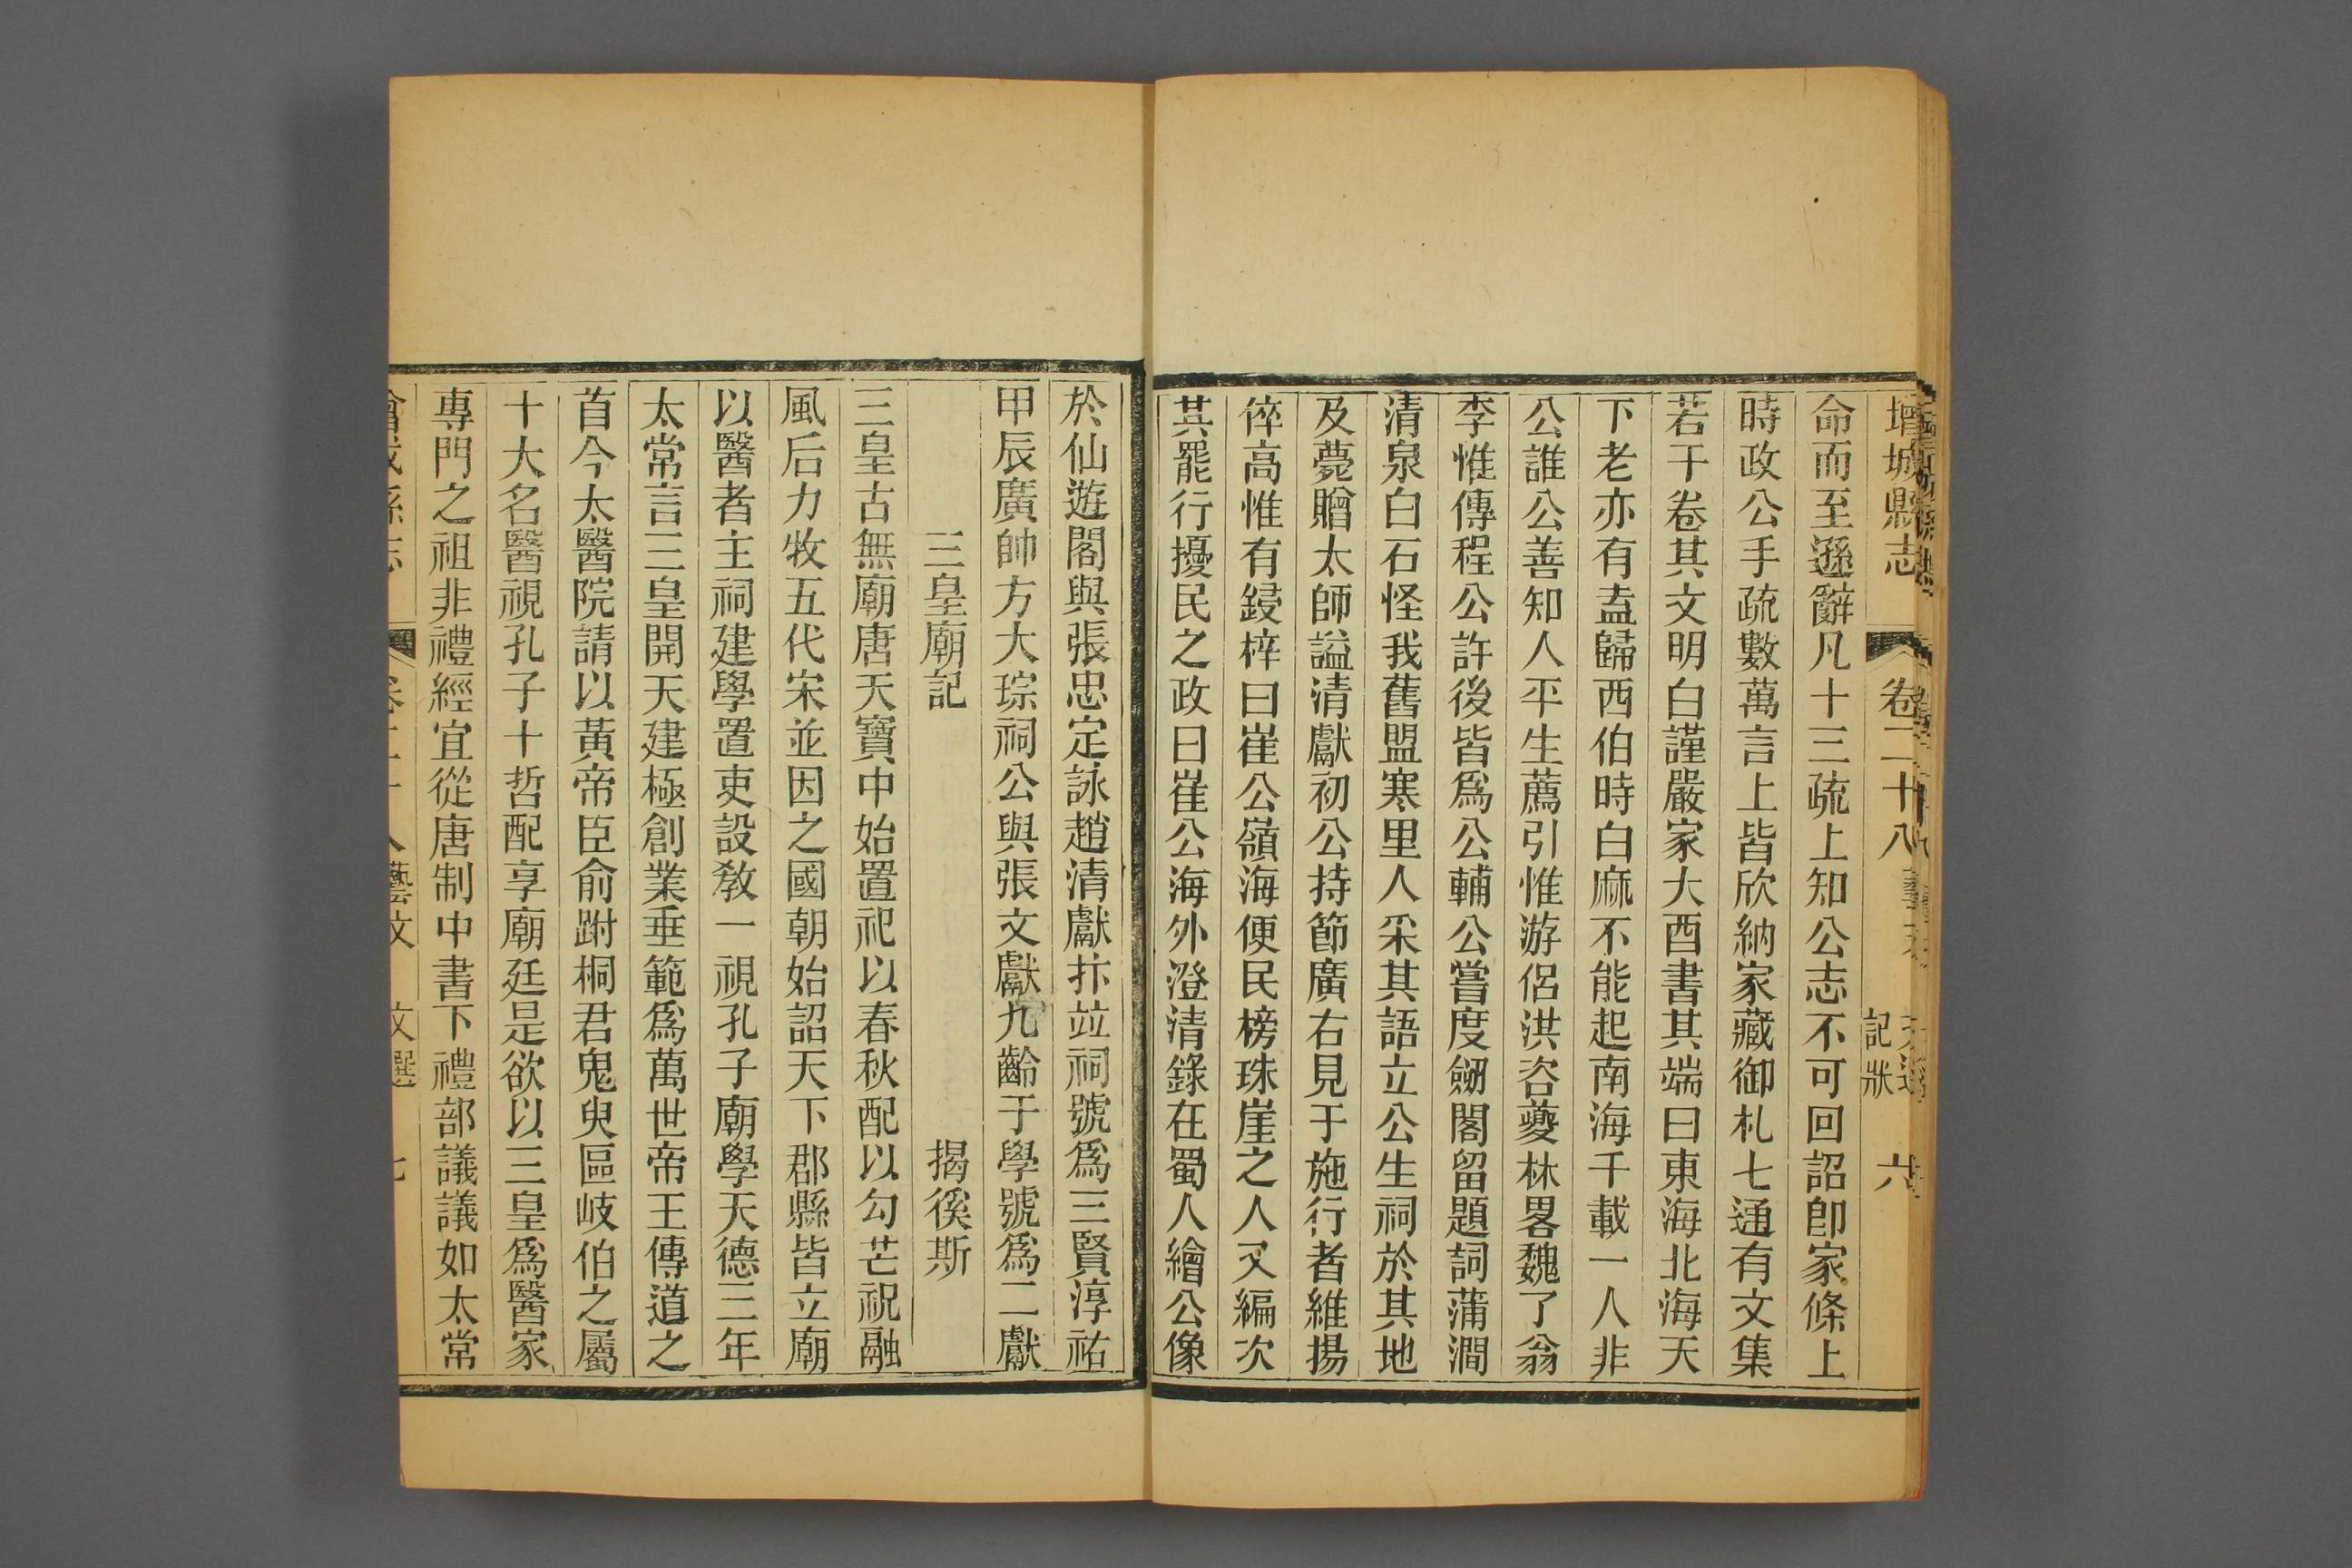 增城縣志 卷二十八 記狀 六
命而至遜辭凡十三疏上知公志不可回詔卽家條上
時政公手疏數萬言上皆欣納家藏御札七通有文集
若干卷其文明白謹嚴家大酉書其端曰東海北海天
下老亦有盍歸西伯時白麻不能起南海千載一人非
公誰公善知人平生薦引惟游侣洪咨夔林畧魏了翁
李惟傳程公許後皆爲公輔公嘗度劒閣留題詞蒲澗
清泉白石怪我舊盟寒里人采其語立公生祠於其地
及薨贈太師謚清獻初公持節廣右見于施行者維揚
倅高惟有鋟梓曰崔公嶺海便民榜珠崖之人又編次
其罷行擾民之政曰崔公海外澄清錄在蜀人繪公像
於仙遊閣與張忠定詠趙清獻抃竝祠號爲三賢淳祐
甲辰廣帥方大琮祠公與張文獻九齡于學號爲二獻
三皇廟記 揭徯斯
三皇古無廟唐天寶中始置祀以春秋配以勾芒祝融
風后力牧五代宋並因之國朝始詔天下郡縣皆立廟
以醫者主祠建學置吏設敎一視孔子廟學天德三年
太常言三皇開天建極創業垂範爲萬世帝王傳道之
首今太醫院請以黃帝臣俞跗桐君鬼臾區岐伯之屬
十大名醫視孔子十哲配享廟廷是欲以三皇爲醫家
專門之祖非禮經宜從唐制中書下禮部議議如太常
藝文 文選 七